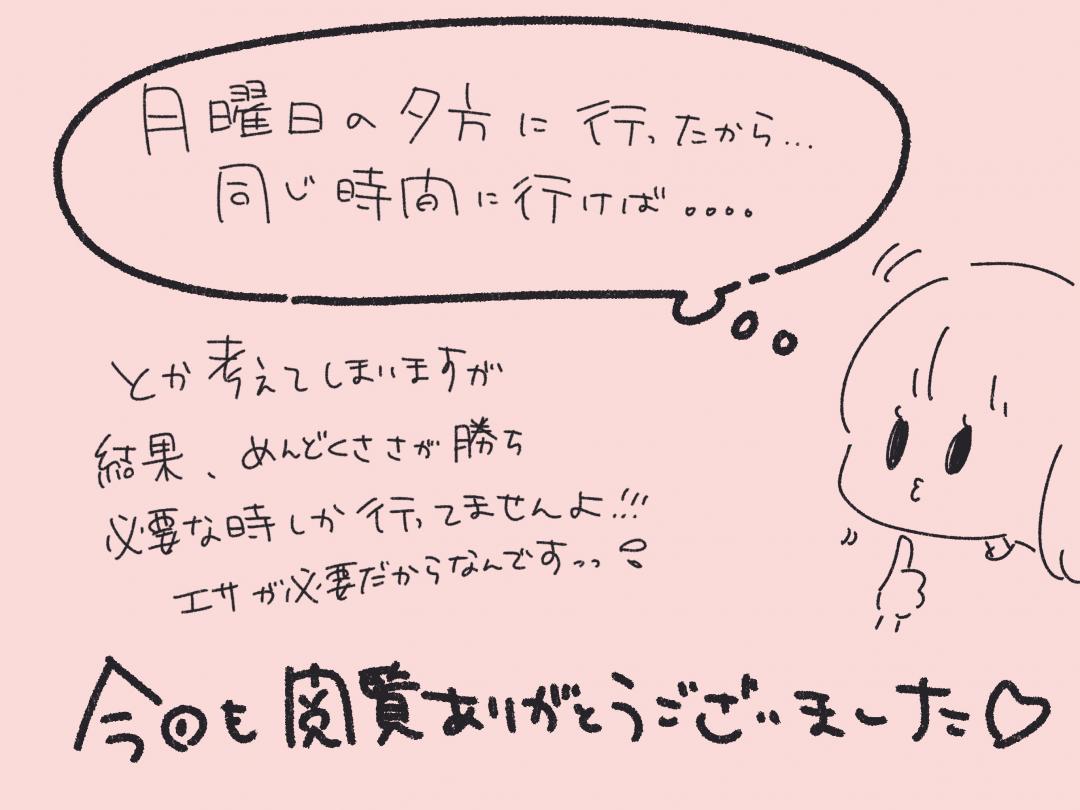 月曜日の夕方に行ったから...
同じ時間に行けば....
とか考えてしまいますが
結果、めんどくささが勝ち
必要な時しか行ってませんよ!!!
エサが必要だからなんですっっ!
今回も閲覧ありがとうございました♡